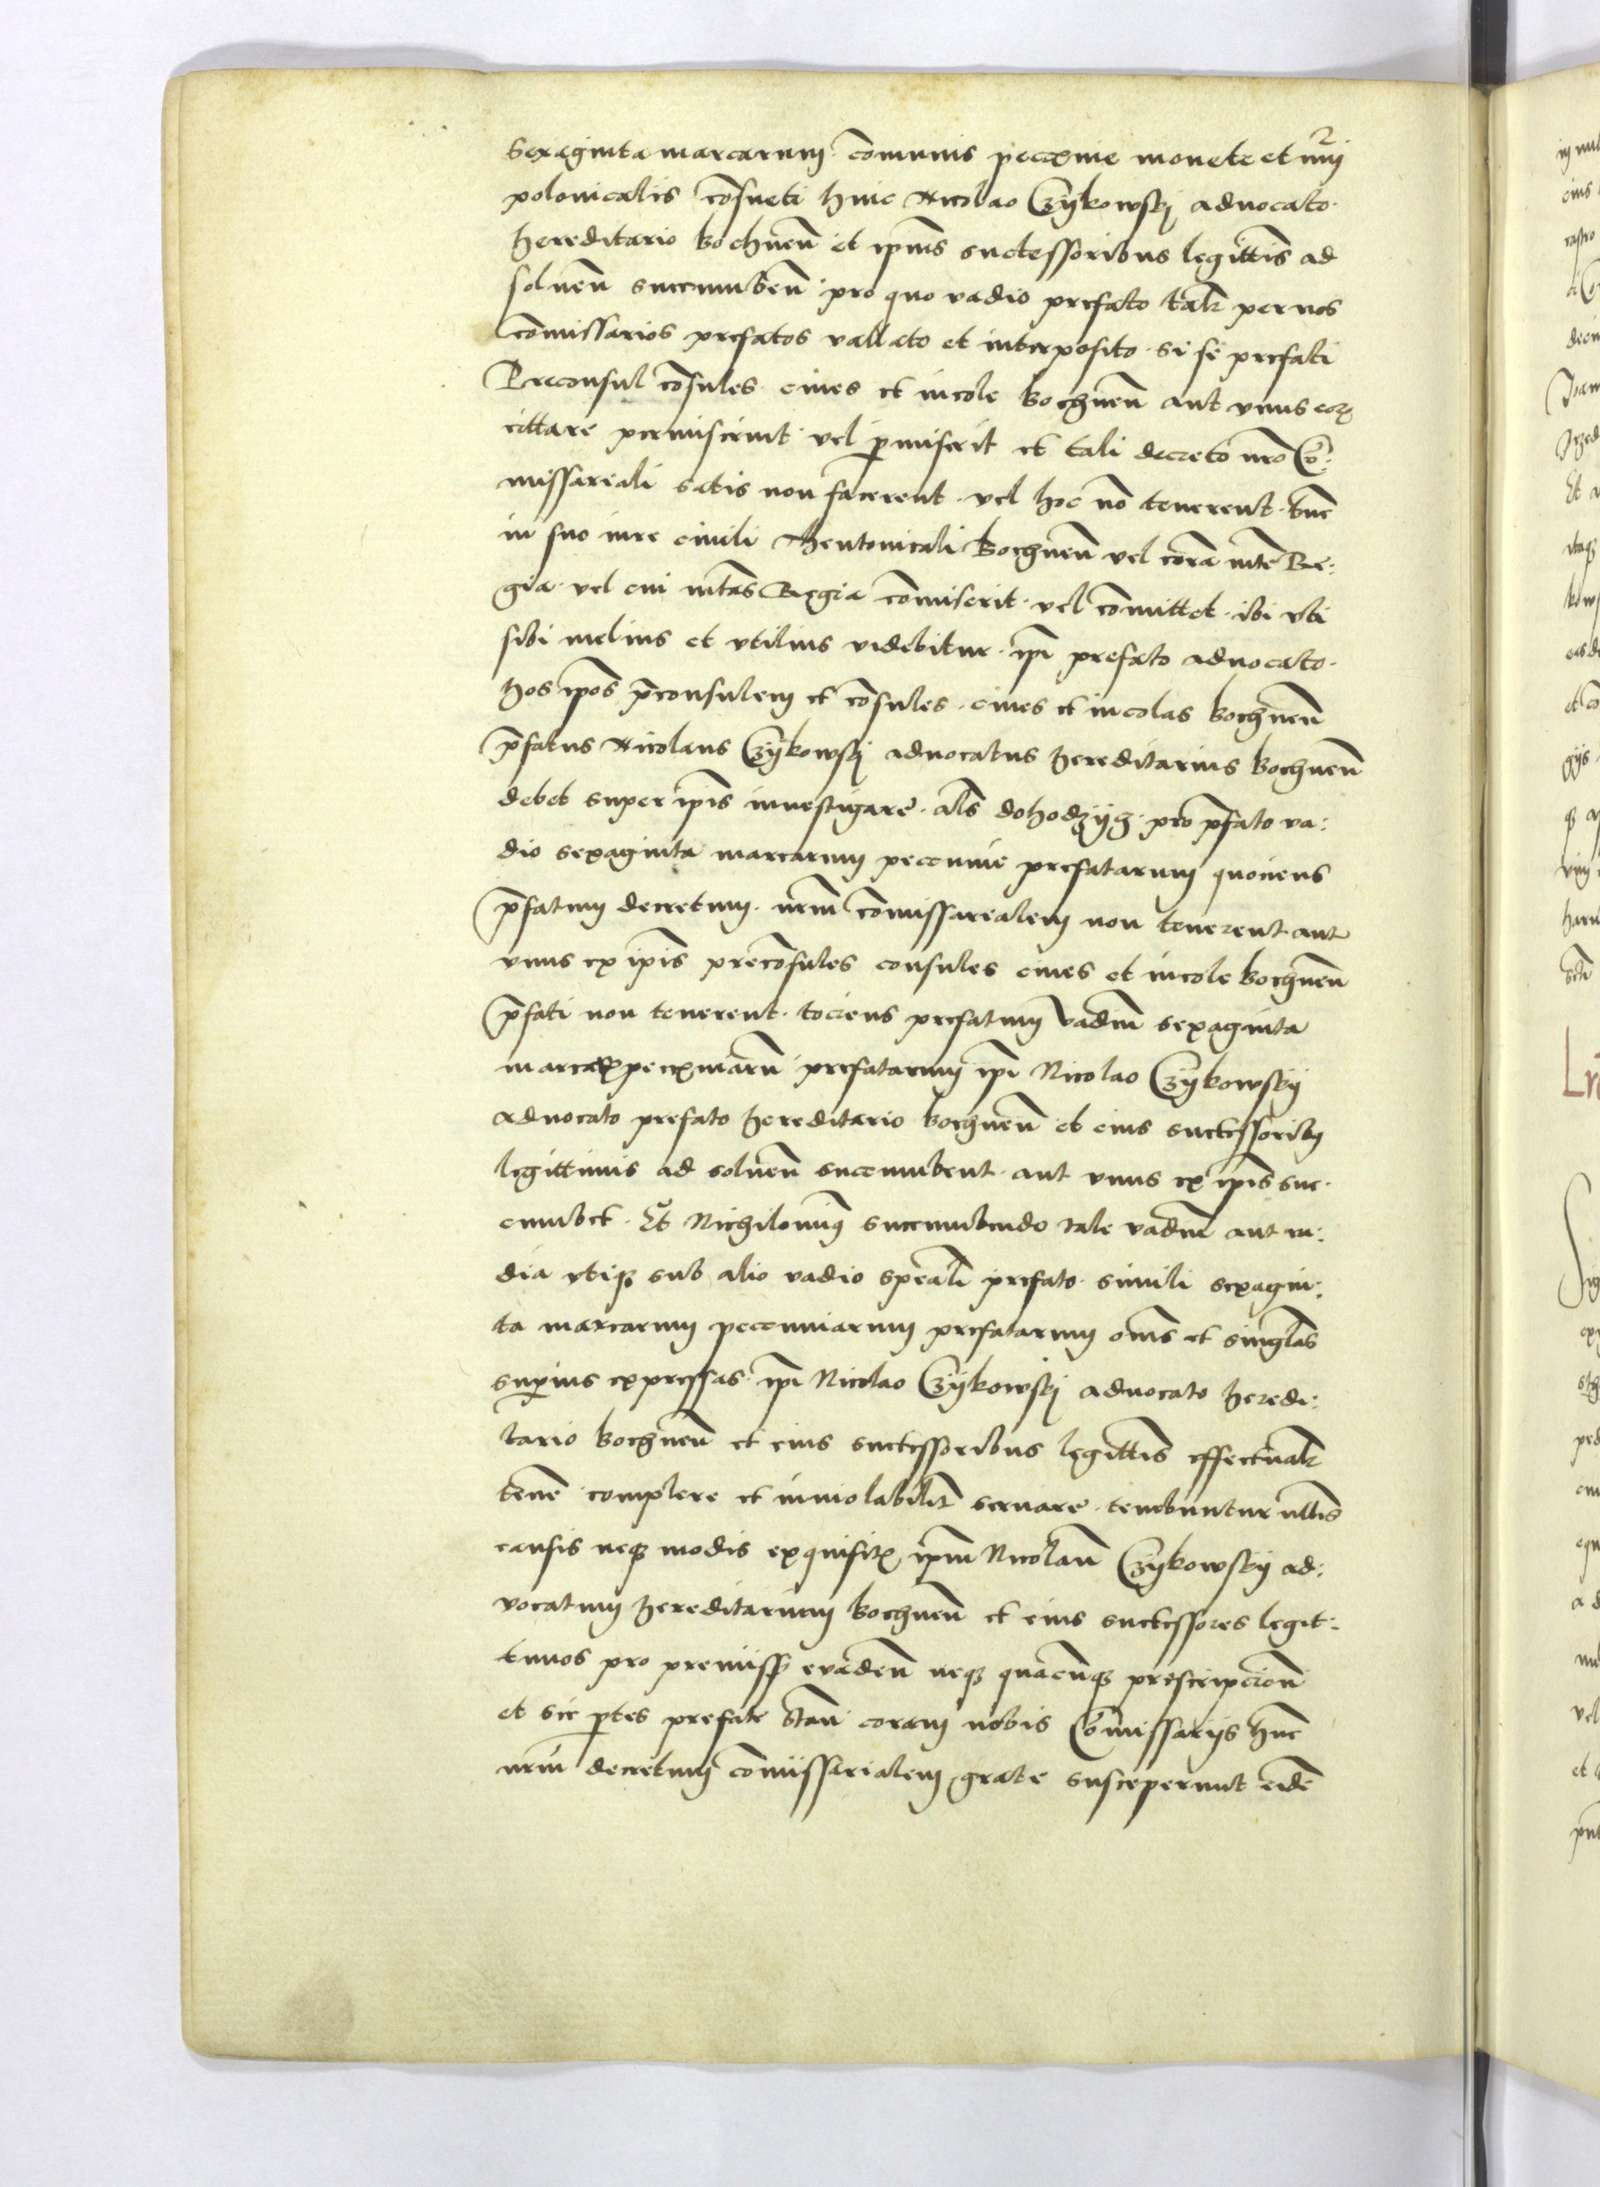 Sexaginta marcarum comunis peccunie monete et nri
polonicalis cosueti huic Nicolao Czykowskj aduocato
hereditario Bochnen et ipius successoribus legittis ad
soluen succumben pro quo vadio prefato talr per nos
comissarios prefatos vallato et interposito si se prefati
Preconsul cosules ciues et incole Bochnen aut vnus eorz
cittare permiserint vel pmiserit et tali decreto nro Co:
missareali satis non facerent vel hoc no tenerent tunc
in suo iure ciuili Theutonicali Bochnen vel cora mte Re:
gia vel cui mtas Regia comiserit vel comittet ibi vbi
sibi melius et vtilius videbitur ipi prefato aduocato
hos ipos pconsulem et cosules ciues et incolas Bochnen
pfatus Nicolaus Czykowskj aduocatus hereditarius Bochnen
debet super ipis inuestigare als dohodzycz pro pfato va:
dio sexaginta marcarum peccunie prefatarum quociens
pfatum decretum nrm comissarealem non tenerent aut
vnus ex ipis precosules consules ciues et incole Bochnen
pfati non tenerent tociens prefatum vadm sexaginta
marcar peccuniaru prefatarum ipi Nicolao Czykowskij
aduocato prefato hereditario Bochnen et eius successoribus
legittimis ad soluen succumbent aut vnus ex ipis suc
cumbet Et Nichilominus succumbendo tale vadm aut va:
dia vbiqz sub alio vadio speali prefato simili sexagin:
ta marcarum peccuniarum prefatarum oms et singlas
superius expressas ipi Nicolao Czykowskj aduocato heredi:
tario Bochnen et eius successoribus legittis effectualr
tene complere et inuiolabilir seruare tenebuntur nllis
causis neqz modis exquisitis ipm Nicolau Czykowskij ad:
vocatum hereditarium Bochnen et eius successores legit:
timos pro premissis euaden neqz quacunqz prescripcion
et sic ptes prefate stan coram nobis Comissarijs hunc
nrm decretum comissarialem grate susceperunt eide